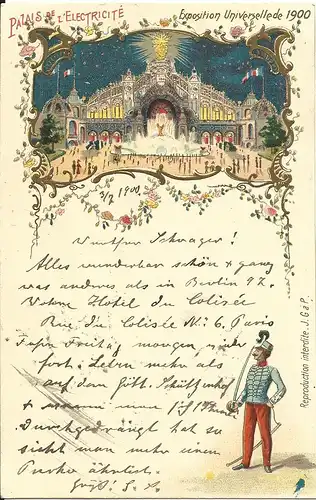 PALAIS DE L'ELECTRICITÉ
Exposition Universelle de 1900
3/7 1900
Schwager!
Alles wunderbar schön + ganz
was anderes als in Berlin 97.
Wohne Hotel du Colisée
Rue du Colisée No 6. Paris
Freitag morgen wieder
fort. mehr als
auf dem
+ man
Durchgedrängt hat so
sieht man mehr einem
ähnlich.
Gruß!
Reproduction interdite. J. G. à P.